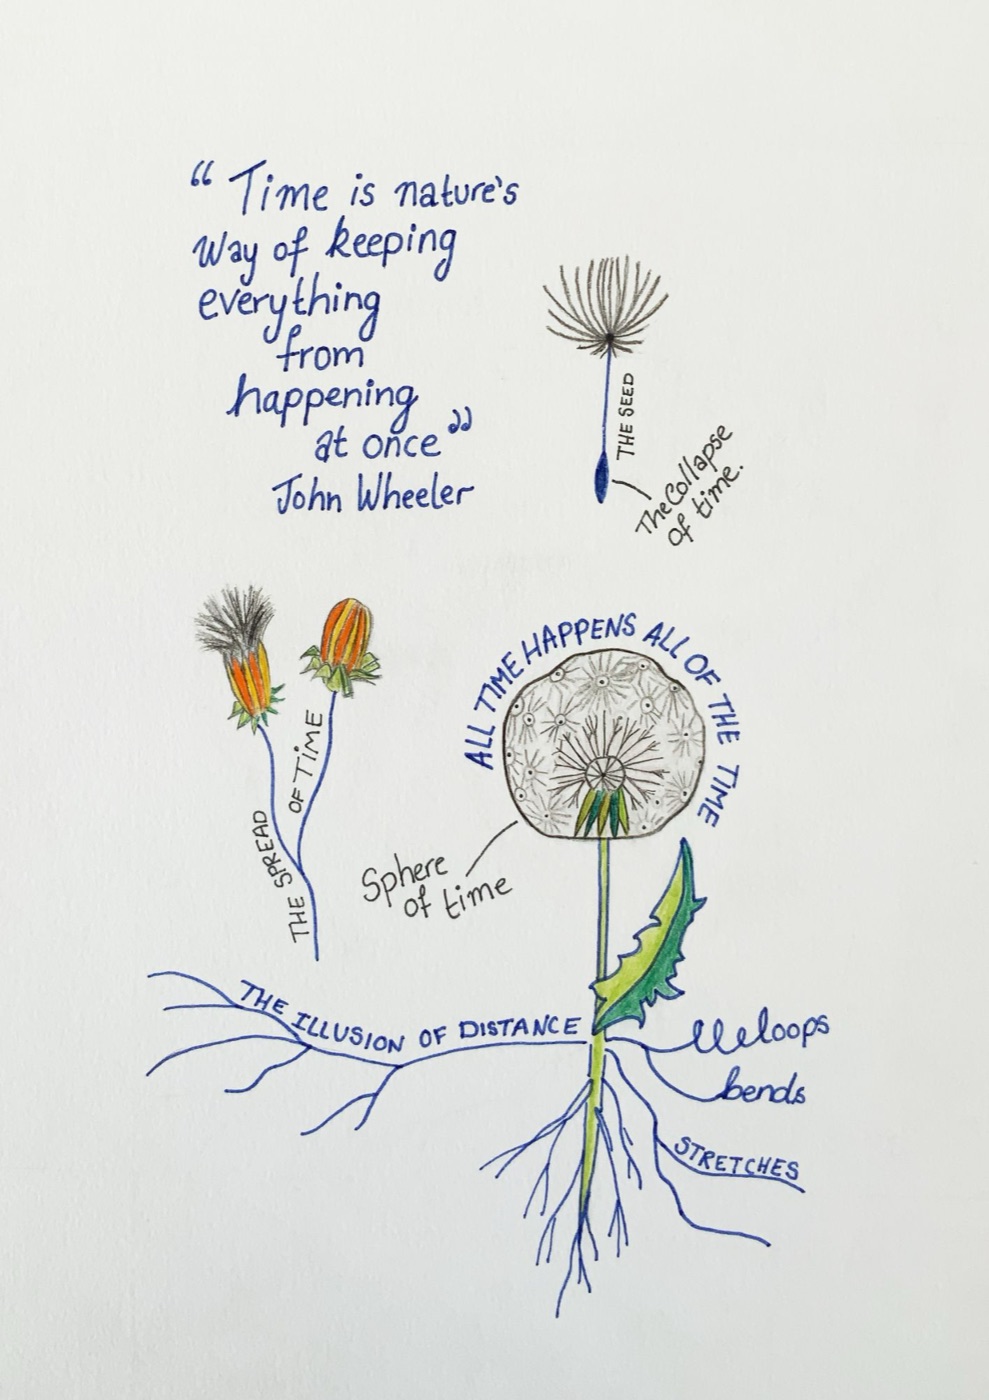 “Time is nature's
way of keeping
everything
from
happening
at once”
John Wheeler
THE SEED
The Collapse
of time.
THE SPREAD
OF TIME
ALL TIME HAPPENS ALL OF THE TIME
Sphere
of time
THE ILLUSION OF DISTANCE
loops
bends
STRETCHES